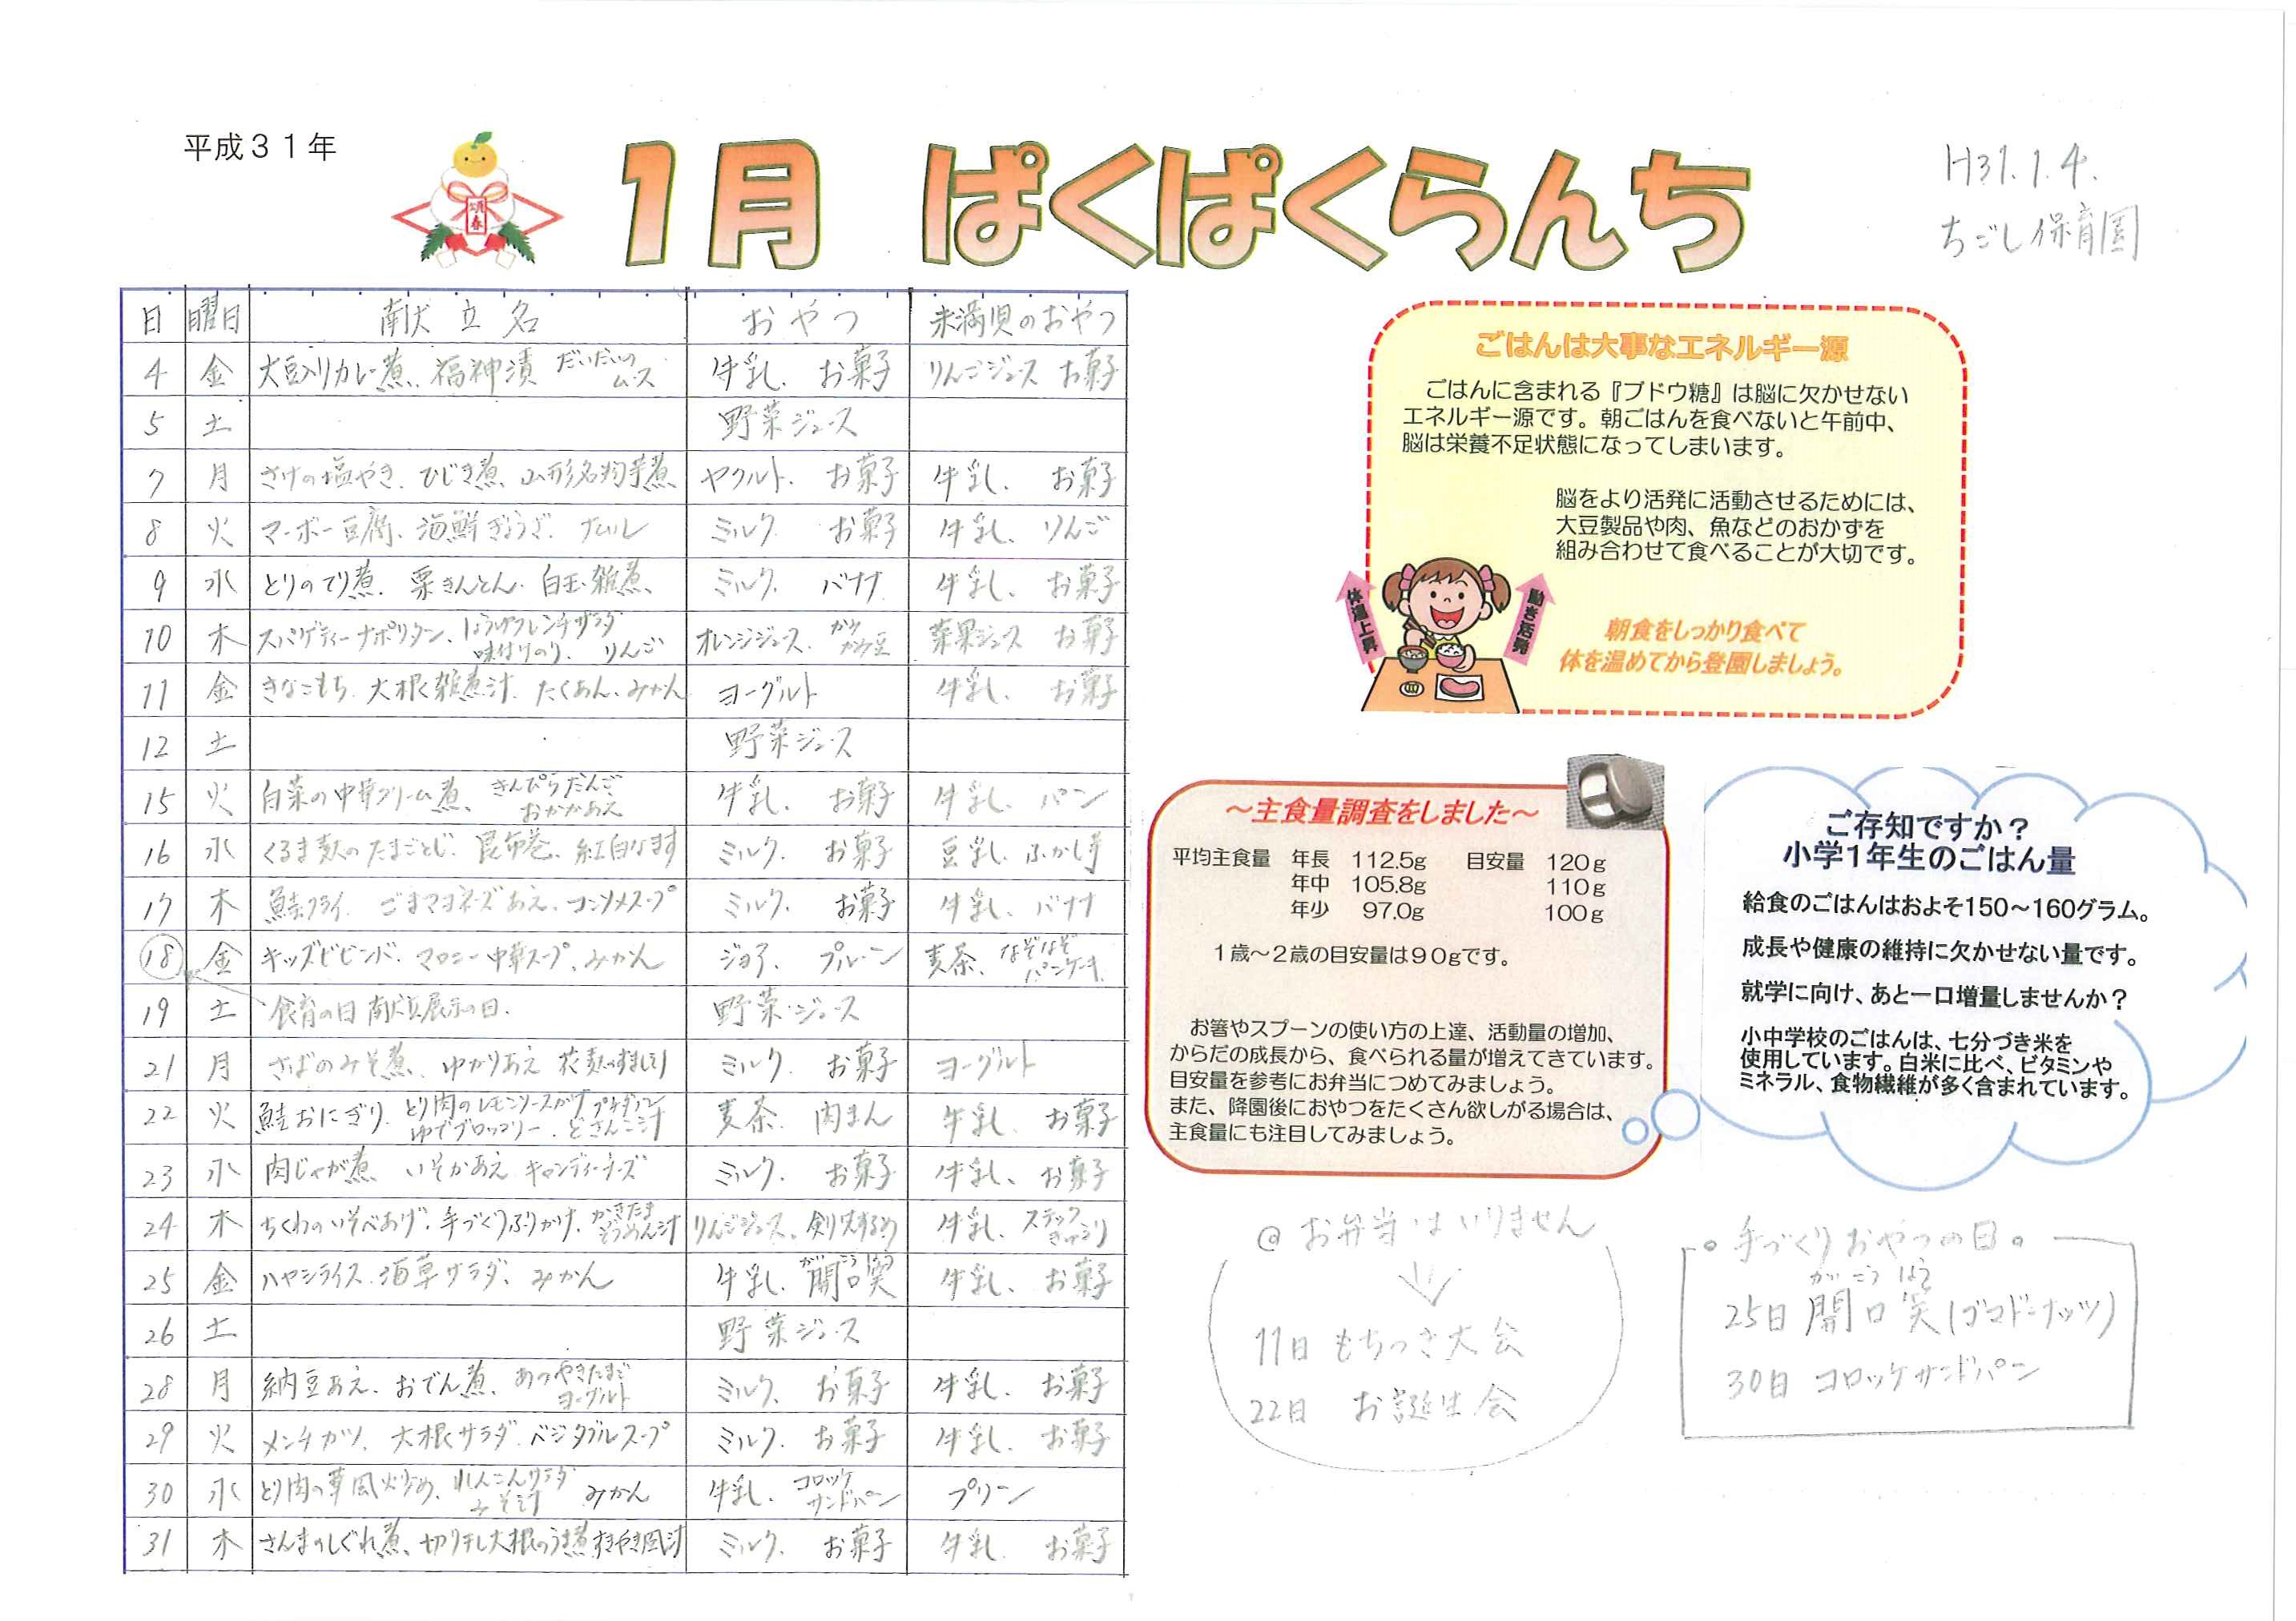 平成31年
頌春
1月 ぱくぱくらんち
H31.1.4.
ちごし保育園
日 曜日 献立名 おやつ 未満児のおやつ
4 金 大豆入りカレー煮、福神漬 だいだいのムース 牛乳、お菓子 りんごジュース お菓子
5 土 野菜ジュース
7 月 さけの塩やき、ひじき煮、山形名物芋煮 ヤクルト、お菓子 牛乳、お菓子
8 火 マーボー豆腐、海鮮ぎょうざ、ナムル ミルク お菓子 牛乳、りんご
9 水 とりのてり煮、栗きんとん、白玉雑煮、 ミルク、バナナ 牛乳、お菓子
10 木 スパゲティーナポリタン、しょうゆフレンチサラダ 味付けのり、りんご オレンジジュース、カリカリ豆 苹果ジュース お菓子
11 金 きなこもち、大根雑煮汁、たくあん、みかん ヨーグルト 牛乳、お菓子
12 土 野菜ジュース
15 火 白菜の中華クリーム煮、きんぴらだんご おかかあえ 牛乳、お菓子 牛乳、パン
16 水 くるま麩のたまごとじ、昆布巻、紅白なます ミルク、お菓子 豆乳、ふかし芋
17 木 鮭フライ、ごまマヨネーズあえ、コンソメスープ ミルク、お菓子 牛乳、バナナ
18 金 キッズビビンバ、マロニー中華スープ、みかん ジョア、プルーン 麦茶、なぞなぞパンケーキ
19 土 食育の日 献立展示の日. 野菜ジュース
21 月 さばのみそ煮、ゆかりあえ 花麩のすまし汁 ミルク、お菓子 ヨーグルト
22 火 鮭おにぎり、とり肉のレモンソースがけ プチゼリー ゆでブロッコリー、どさんこ汁 麦茶、肉まん 牛乳、お菓子
23 水 肉じゃが煮 いそかあえ キャンディーチーズ ミルク、お菓子 牛乳、お菓子
24 木 ちくわのいそべあげ、手づくりふりかけ、かきたまそうめん汁 りんごジュース、剣先するめ 牛乳、スティックきゅうり
25 金 ハヤシライス、海草サラダ、みかん 牛乳、開口笑 牛乳、お菓子
26 土 野菜ジュース
28 月 納豆あえ、おでん煮、あつやきたまご ヨーグルト ミルク、お菓子 牛乳、お菓子
29 火 メンチカツ、大根サラダ、ベジタブルスープ ミルク、お菓子 牛乳、お菓子
30 水 とり肉の華風炒め、れんこんサラダ みそ汁 みかん 牛乳、コロッケサンドパン プリン
31 木 さんまのしぐれ煮、切り干し大根のうま煮 すきやき風汁 ミルク、お菓子 牛乳 お菓子
ごはんは大事なエネルギー源
ごはんに含まれる『ブドウ糖』は脳に欠かせない
エネルギー源です。朝ごはんを食べないと午前中、
脳は栄養不足状態になってしまいます。
脳をより活発に活動させるためには、
大豆製品や肉、魚などのおかずを
組み合わせて食べることが大切です。
体温上昇
動き活発
朝食をしっかり食べて
体を温めてから登園しましょう。
～主食量調査をしました～
平均主食量 年長 112.5g 目安量 120g
年中 105.8g 110g
年少 97.0g 100g
1歳～2歳の目安量は90gです。
お箸やスプーンの使い方の上達、活動量の増加、
からだの成長から、食べられる量が増えてきています。
目安量を参考にお弁当につめてみましょう。
また、降園後におやつをたくさん欲しがる場合は、
主食量にも注目してみましょう。
ご存知ですか？
小学1年生のごはん量
給食のごはんはおよそ150～160グラム。
成長や健康の維持に欠かせない量です。
就学に向け、あと一口増量しませんか？
小中学校のごはんは、七分づき米を
使用しています。白米に比べ、ビタミンや
ミネラル、食物繊維が多く含まれています。
@ お弁当はいりません
11日 もちつき大会
22日 お誕生会
。手づくりおやつの日。
がいこうしょう
25日 開口笑(ゴマドーナッツ)
30日 コロッケサンドパン